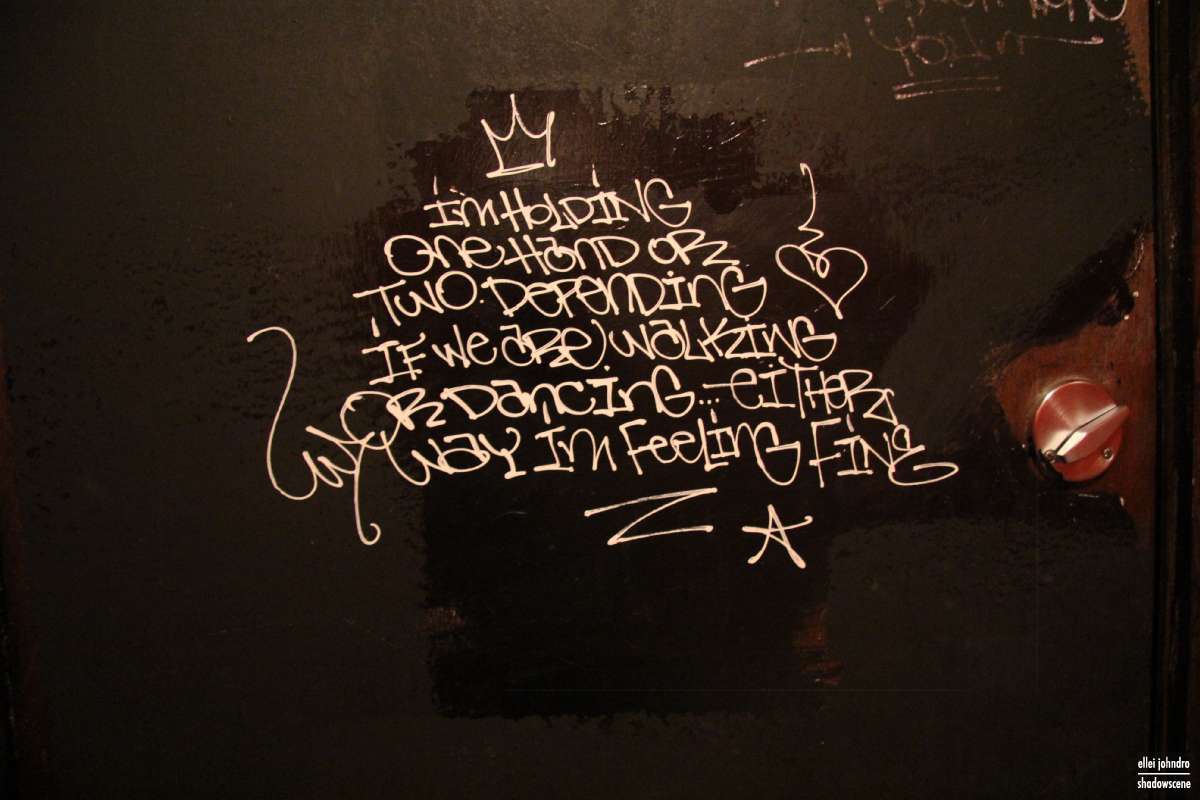 You
I'm Holding
One Hand or
Two. Depending
If we are walking
Or Dancing... either
way Im feeling fine
Z
ellei johndro
shadowscene